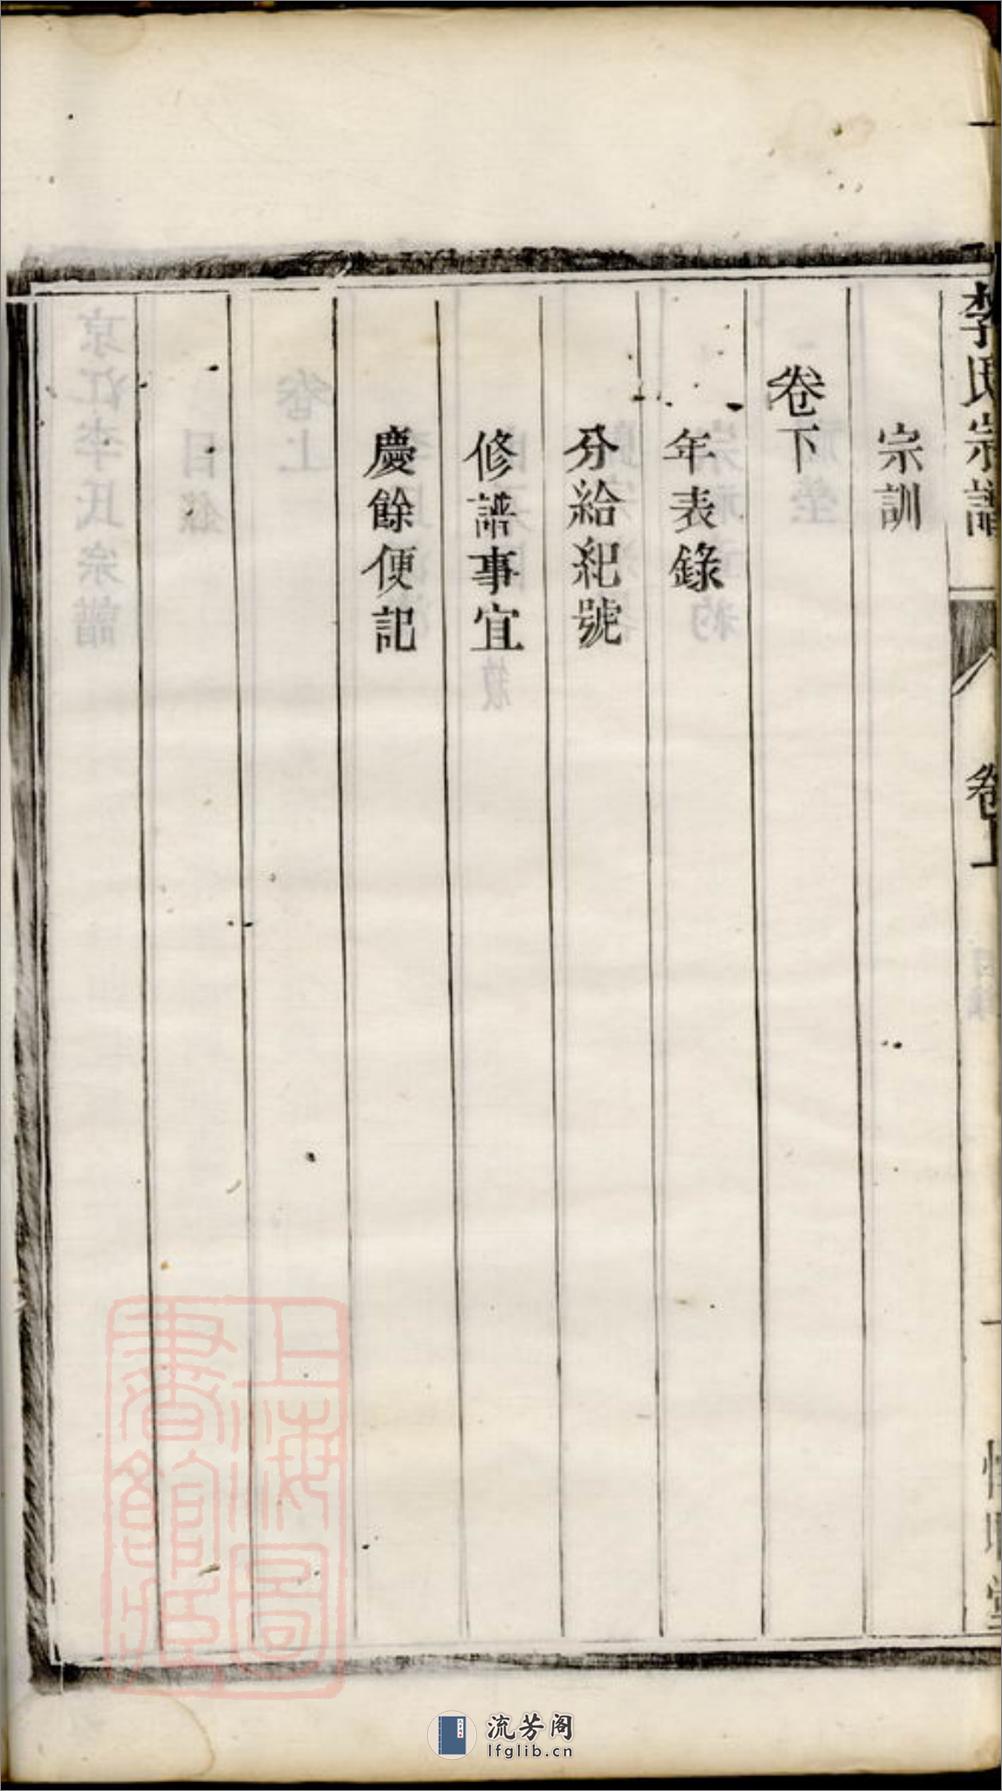 李氏宗譜
卷上
宗訓
卷下
年表錄
分給紀號
修譜事宜
慶餘便記
上海圖
書館藏
流芳阁
lfglib.cn